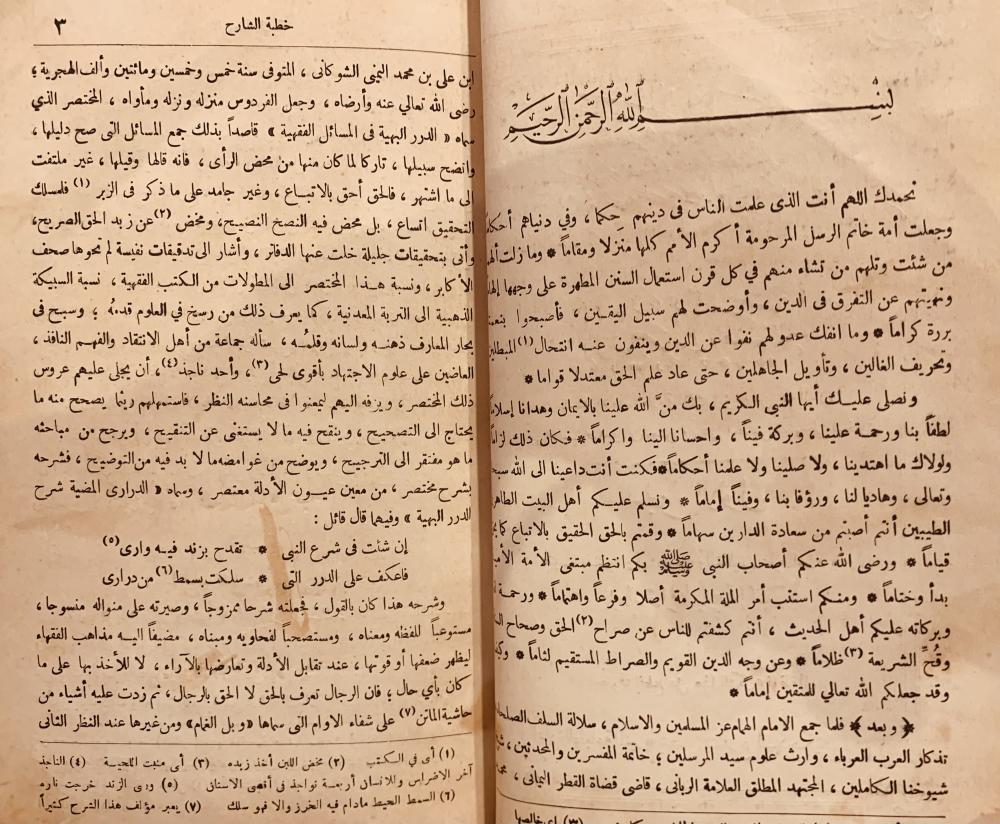 بسم الله الرحمن الرحيم
نحمدك اللهم أنت الذى علمت الناس فى دينهم حكما ، وفي دنياهم أحكاما
وجعلت أمة خاتم الرسل المرحومة أكرم الأمم كلها منزلا ومقاماً * وما زلت
من شئت وتلهم من تشاء منهم في كل قرن استعمال السنن المطهرة على وجهها
ونهيتهم عن التفرق فى الدين ، وأوضحت لهم سبيل اليقين ، فأصبحوا
بررة كراماً * وما انفك عدو لهم نفوا عن الدين وينفون عنه انتحال (١) المبطلين
وتحريف الغالين ، وتأويل الجاهلين ، حتى عاد علم الحق معتدلا قواما *
ونصلى عليك أيها النبي الكريم ، بك منَّ الله علينا بالايمان وهدانا
لطفاً بنا ورحمة علينا ، وبركة فيناً ، واحسانا الينا واكراماً * فكان ذلك
ولولاك ما اهتدينا ، ولا صلينا ولا علمنا أحكاماً * فكنت أنت داعينا الى الله
وتعالى ، وهاديا لنا ، ورؤفا بنا ، وفيناً إماماً * ونسلم عليكم أهل البيت
الطيبين أنتم أصبتم من سعادة الدارين سهاماً * وقمتم بالحق الحقيق بالاتباع
قياماً * ورضى الله عنكم أصحاب النبي ﷺ بكم انتظم مبتغى الأمة
بدأ وختاماً * ومنكم استتب أمر الملة المكرمة أصلا وفرعاً واهتماما * ورحمة
وبركاته عليكم أهل الحديث ، أنتم كشفتم للناس عن صراح (٢) الحق وصحاح
وقُحِّ الشريعة (٣) ظلاماً * وعن وجه الدين القويم والصراط المستقيم لثاماً *
وقد جعلكم الله تعالي للمتقين إماما *
﴿ وبعد ﴾ فلما جمع الامام الهمام عز المسلمين والاسلام ، سلالة السلف
تذكار العرب العرباء ، وارث علوم سيد المرسلين ؛ خاتمة المفسرين والمحدثين ،
شيوخنا الكاملين ، المجتهد المطلق العلامة الربانى ، قاضى قضاة القطر اليمانى ،
(٣) اى خالصها
خطبة الشارح ٣
ابن على بن محمد اليمنى الشوكانى ، المتوفى سنة خمس وخمسين ومائتين وألف الهجرية ؛
رضى الله تعالي عنه وأرضاه ، وجعل الفردوس منزله ونزله ومأواه ، المختصر الذي
سماه « الدرر البهية فى المسائل الفقهية » قاصداً بذلك جمع المسائل التى صح دليلها ،
واتضح سبيلها ، تاركا لما كان منها من محض الرأى ، فانه قالها وقيلها ، غير ملتفت
الى ما اشتهر ، فالحق أحق بالاتباع ، وغير جامد على ما ذكر فى الزبر (١) فلمسلك
التحقيق اتساع ، بل محض فيه النصح النصيح ، ومخض (٢) عن زبد الحق الصريح ،
وأتى بتحقيقات جليلة خلت عنها الدفاتر ، وأشار الى تدقيقات نفيسة لم تحوها صحف
الأكابر ، ونسبة هذا المختصر الى المطولات من الكتب الفقهية ، نسبة السبيكة
الذهبية الى التربة المعدنية ، كما يعرف ذلك من رسخ في العلوم قدمهُ ؛ وسبح في
بحار المعارف ذهنه ولسانه وقلمُه ، سأله جماعة من أهل الانتقاد والفهم النافذ ،
العاضين على علوم الاجتهاد بأقوى لحى (٣) ، وأحد ناجذ (٤) ، أن يجلى عليهم عروس
ذلك المختصر ، ويزفه اليهم ليمعنوا فى محاسنه النظر ، فاستمهلهم ريثما يصحح منه ما
يحتاج الى التصحيح ، وينقح فيه ما لا يستغنى عن التنقيح ، ويرجح من مباحثه
ما هو مفتقر الى الترجيح ، ويوضح من غوامضه ما لا بد فيه من التوضيح ، فشرحه
بشرح مختصر ، من معين عيون الأدلة معتصر ، وسماه « الدرارى المضية شرح
الدرر البهية » وفيهما قال قائل :
إن شئت فى شرع النبى * تقدح بزند فيه وارى (٥)
فاعكف على الدرر التى * سلكت بسمط (٦) من درارى
وشرحه هذا كان بالقول ، فجعلته شرحا ممزوجاً ، وصيرته على منواله منسوجا ،
مستوعباً للفظه ومعناه ، ومستصحباً لفحاويه ومبناه ، مضيفاً اليه مذاهب الفقهاء
ليظهر ضعفها أو قوتها ، عند تقابل الأدلة وتعارضها بالآراء ، لا للأخذ بها على ما
كان بأي حال ؛ فان الرجال تعرف بالحق لا الحق بالرجال ، ثم زدت عليه أشياء من
حاشية الماتن (٧) على شفاء الاوام التى سماها « وبل الغمام » ومن غيرها عند النظر الثانى
(١) أى فى الكتب (٢) مخض اللبن أخذ زبده (٣) أى منبت اللحية (٤) الناجذ
آخر الاضراس وللانسان أربعة نواجذ فى أقصى الاسنان (٥) ورى الزند خرجت ناره
(٦) السمط الخيط مادام فيه الخرز والا فهو سلك (٧) يعبر مؤلف هذا الشرح كثيراً